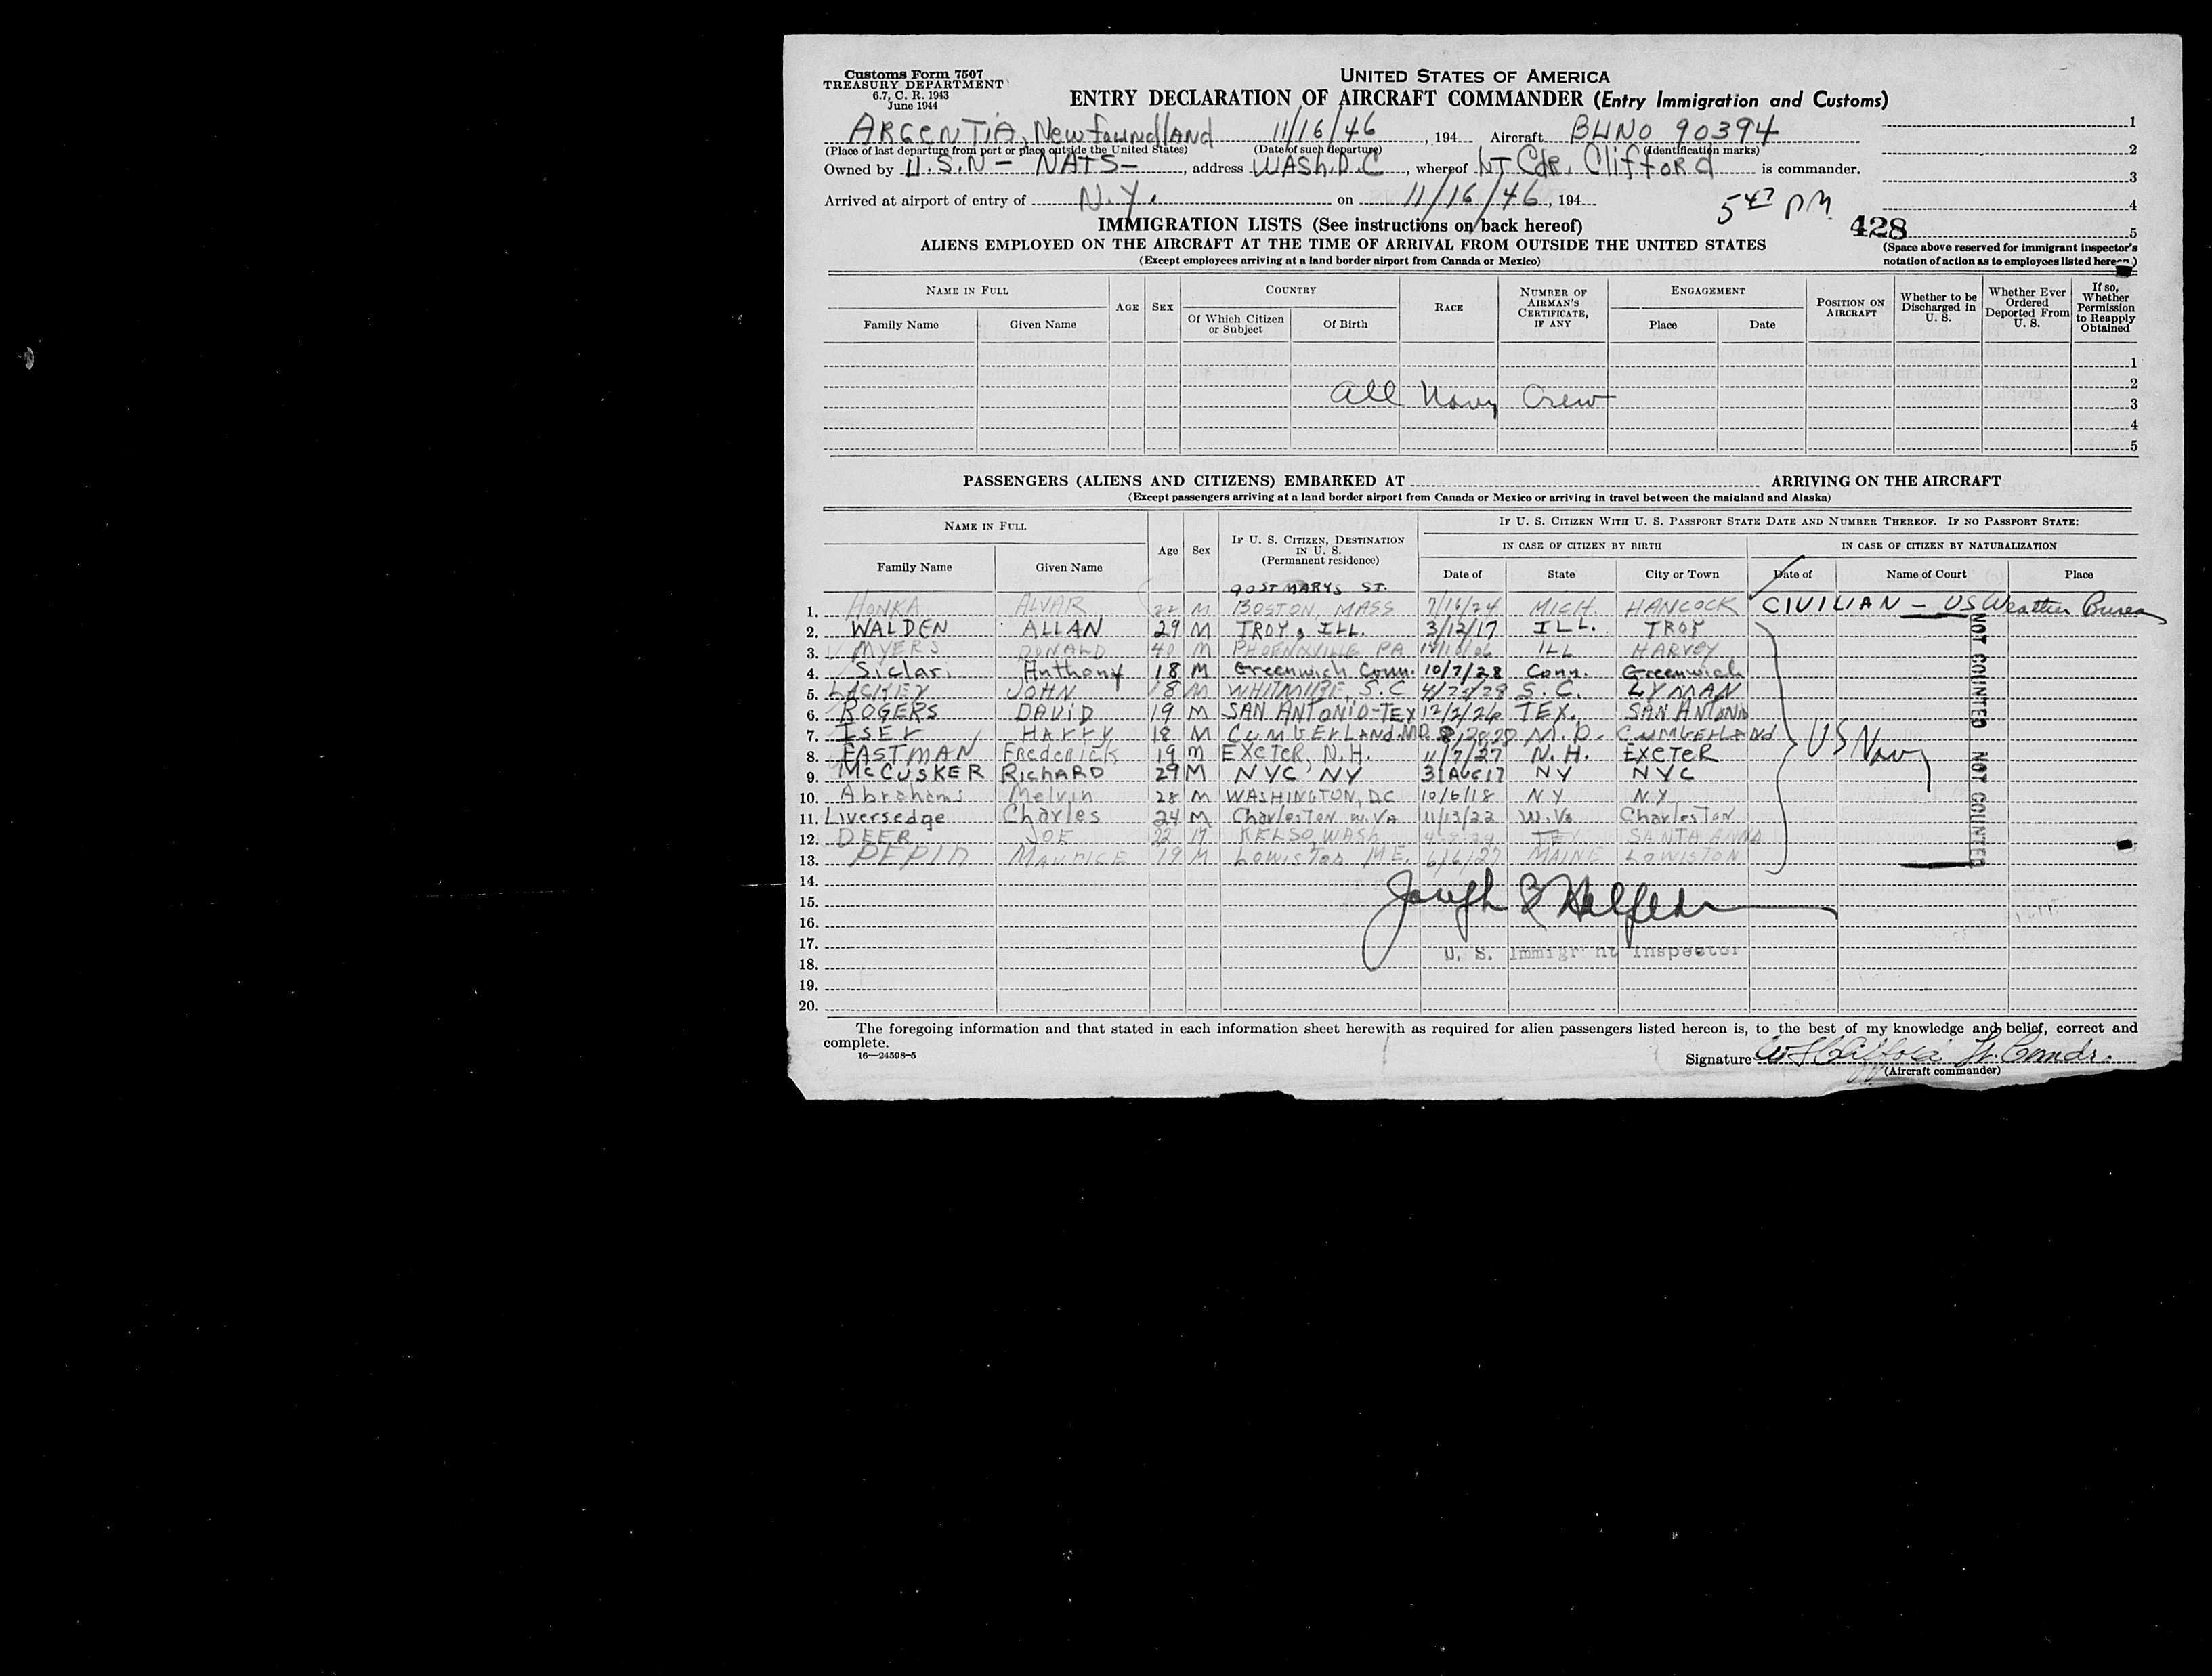 Customs Form 7507
TREASURY DEPARTMENT
6.7, C. R. 1943
June 1944
UNITED STATES OF AMERICA
ENTRY DECLARATION OF AIRCRAFT COMMANDER (Entry Immigration and Customs)
ARGENTIA, Newfoundland 11/16/46, 194 Aircraft BUNO 90394
(Place of last departure from port or place outside the United States) (Date of such departure) (Identification marks)
Owned by U.S.N - NATS -, address WASH. D.C, whereof LT Cdr. Clifford is commander.
Arrived at airport of entry of N.Y. on 11/16/46, 194
5 47 PM
428
1
2
3
4
5
(Space above reserved for immigrant inspector's notation of action as to employees listed hereon.)
IMMIGRATION LISTS (See instructions on back hereof)
ALIENS EMPLOYED ON THE AIRCRAFT AT THE TIME OF ARRIVAL FROM OUTSIDE THE UNITED STATES
(Except employees arriving at a land border airport from Canada or Mexico)
NAME IN FULL AGE SEX COUNTRY RACE NUMBER OF AIRMAN'S CERTIFICATE, IF ANY ENGAGEMENT POSITION ON AIRCRAFT Whether to be Discharged in U. S. Whether Ever Ordered Deported From U. S. If so, Whether Permission to Reapply Obtained
Family Name Given Name Of Which Citizen or Subject Of Birth Place Date
1
2
All Navy Crew 3
4
5
PASSENGERS (ALIENS AND CITIZENS) EMBARKED AT ARRIVING ON THE AIRCRAFT
(Except passengers arriving at a land border airport from Canada or Mexico or arriving in travel between the mainland and Alaska)
NAME IN FULL Age Sex IF U. S. CITIZEN, DESTINATION IN U. S. (Permanent residence) IF U. S. CITIZEN WITH U. S. PASSPORT STATE DATE AND NUMBER THEREOF. IF NO PASSPORT STATE:
IN CASE OF CITIZEN BY BIRTH IN CASE OF CITIZEN BY NATURALIZATION
Family Name Given Name Date of State City or Town Date of Name of Court Place
90 ST MARYS ST.
1. HONKA ALVAR 22 M BOSTON, MASS 7/16/24 MICH. HANCOCK CIVILIAN - US Weather Bureau
2. WALDEN ALLAN 29 M TROY, ILL. 3/12/17 ILL. TROY
3. MYERS DONALD 40 M PHOENIXVILLE PA ILL HARVEY
4. Siclari Anthony 18 M Greenwich Conn. 10/7/28 Conn. Greenwich
5. LACKEY JOHN 18 M WHITMIRE, S.C S.C. LYMAN
6. ROGERS DAVID 19 M SAN ANTONIO-TEX 12/2/26 TEX. SAN ANTONIO
7. ISER HARRY 18 M CUMBERLAND. MD. M.D. CUMBERLAND
8. EASTMAN FREDERICK 19 M EXETER, N.H. 11/7/27 N.H. EXETER
9. McCUSKER RICHARD 29 M NYC NY 31 AUG 17 NY NYC
10. Abrahams Melvin 28 M WASHINGTON, DC 10/6/18 NY NY
11. Liversedge Charles 24 M Charleston W. VA 11/13/22 W. Va Charleston
12. DEER JOE 22 M KELSO, WASH TEX SANTA ANNA
13. PEPIN MAURICE 19 M LOWISTON ME. 6/6/27 MAINE LOWISTON
US Navy
NOT COUNTED NOT COUNTED
14.
15.
16.
17.
18.
19.
20.
Joseph
U. S. Immigrant Inspector
The foregoing information and that stated in each information sheet herewith as required for alien passengers listed hereon is, to the best of my knowledge and belief, correct and
complete.
16—24598-5
Signature W H Clifford Lt. Comdr.
(Aircraft commander)